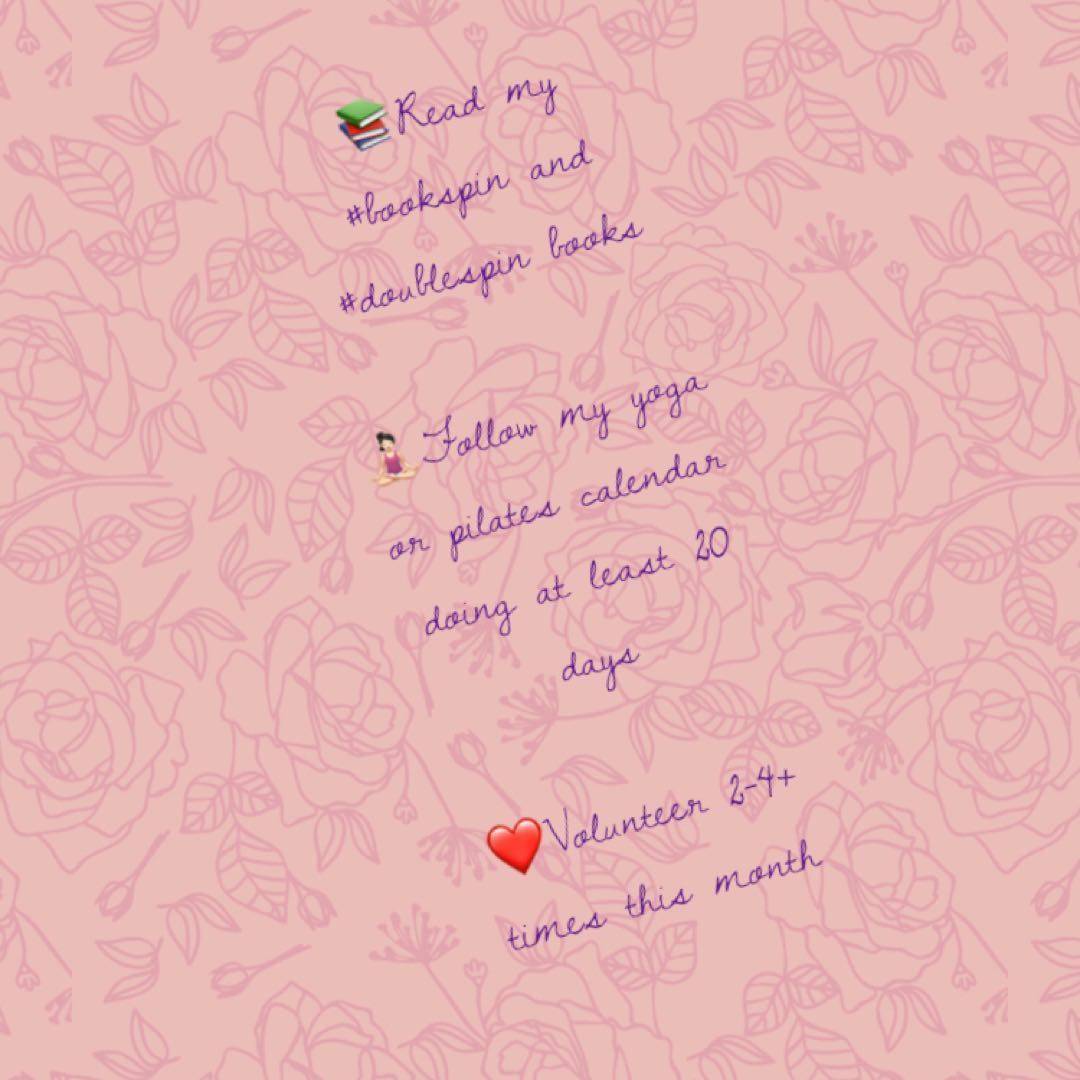 📚Read my
#bookspin and
#doublespin books
🧘🏻‍♀️Follow my yoga
or pilates calendar
doing at least 20
days
❤️Volunteer 2-4+
times this month